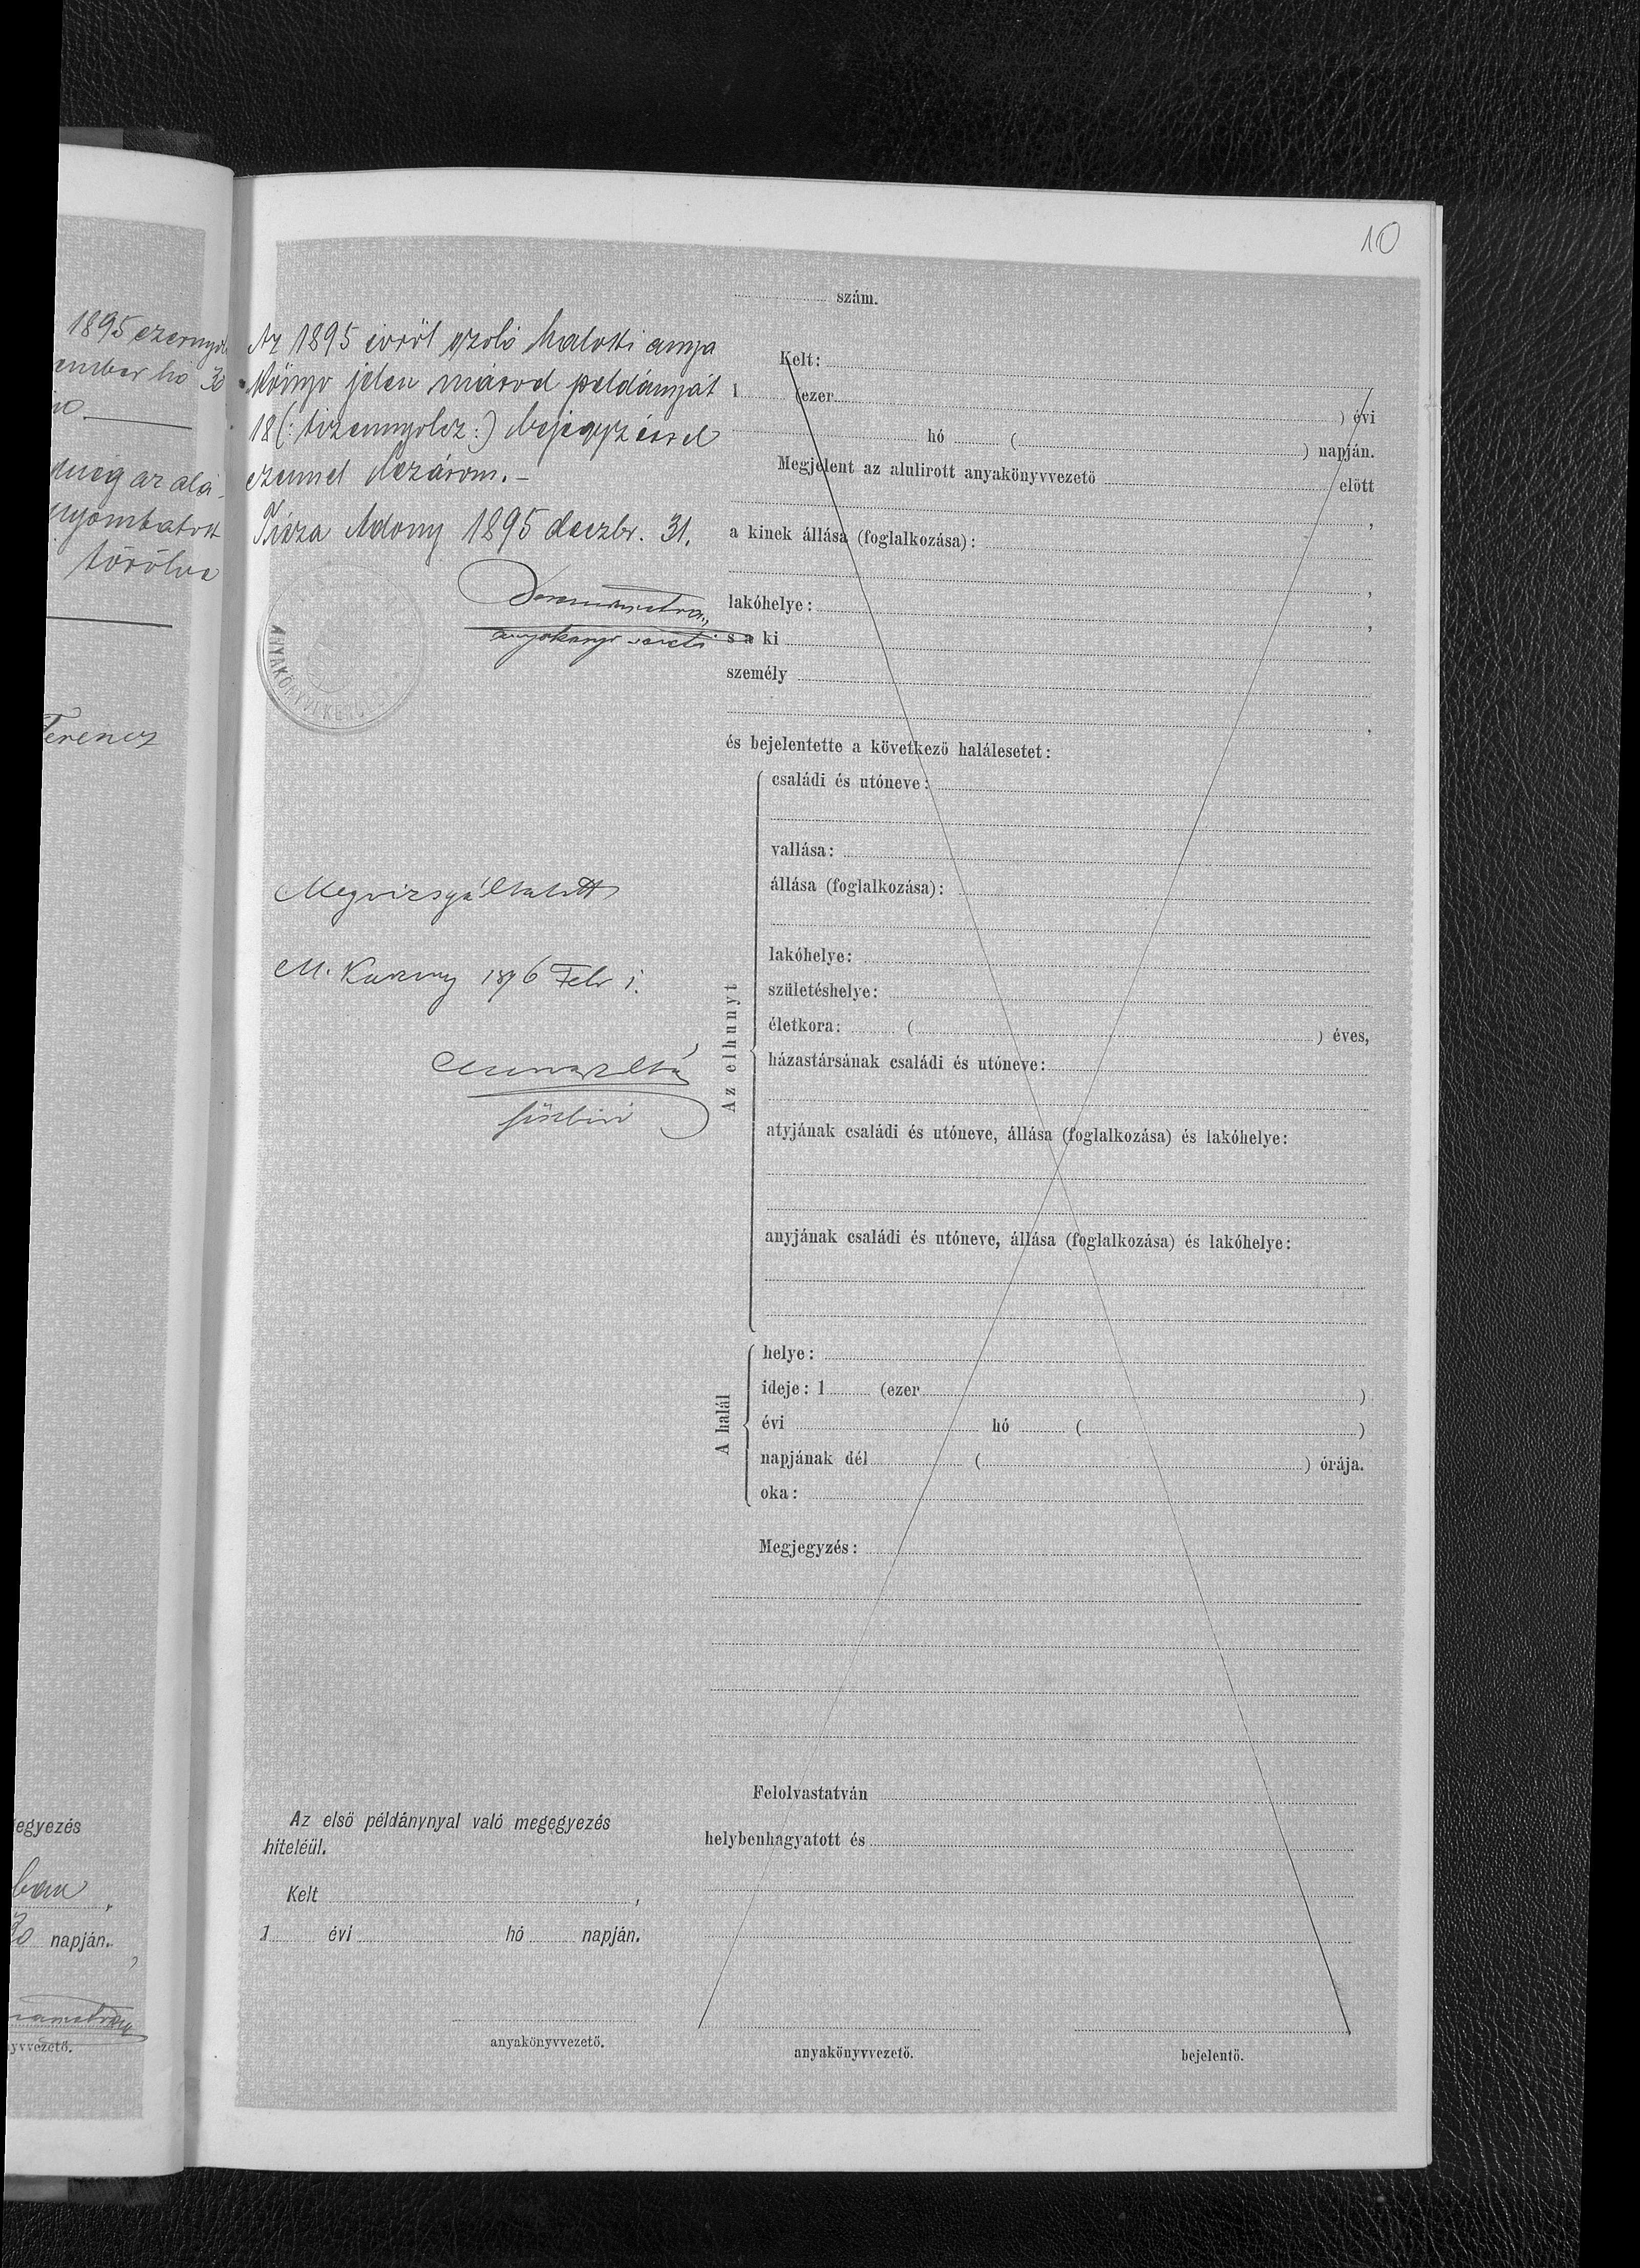 1895 ezernyol
ember hó 30
törölve
Ferencz
egyezés
ban,
30 napján.
yvvezető.
10
szám.
Az 1895 évről szoló halotti anya
könyv jelen másod példányját
18 (: tizennyolcz :) bejegyzéssel
ezennel lezárom. -
Tisza Adony 1895 deczbr. 31.
ANYAKÖNYVI KERÜLET
Megvizsgáltatott
1896 Febr 1.
Kelt:
1 (ezer ) évi
hó ( ) napján.
Megjelent az alulirott anyakönyvvezető előtt
,
a kinek állása (foglalkozása):
,
lakóhelye: ,
s a ki
személy
,
és bejelentette a következő halálesetet:
Az elhunyt
családi és utóneve:
vallása:
állása (foglalkozása):
lakóhelye:
születéshelye:
életkora: ( ) éves,
házastársának családi és utóneve:
atyjának családi és utóneve, állása (foglalkozása) és lakóhelye:
anyjának családi és utóneve, állása (foglalkozása) és lakóhelye:
A halál
helye:
ideje: 1 (ezer )
évi hó ( )
napjának dél ( ) órája.
oka:
Megjegyzés:
Felolvastatván
helybenhagyatott és
Az első példánynyal való megegyezés
hiteléül.
Kelt ,
1 évi hó napján.
anyakönyvvezető.
anyakönyvvezető.
bejelentő.